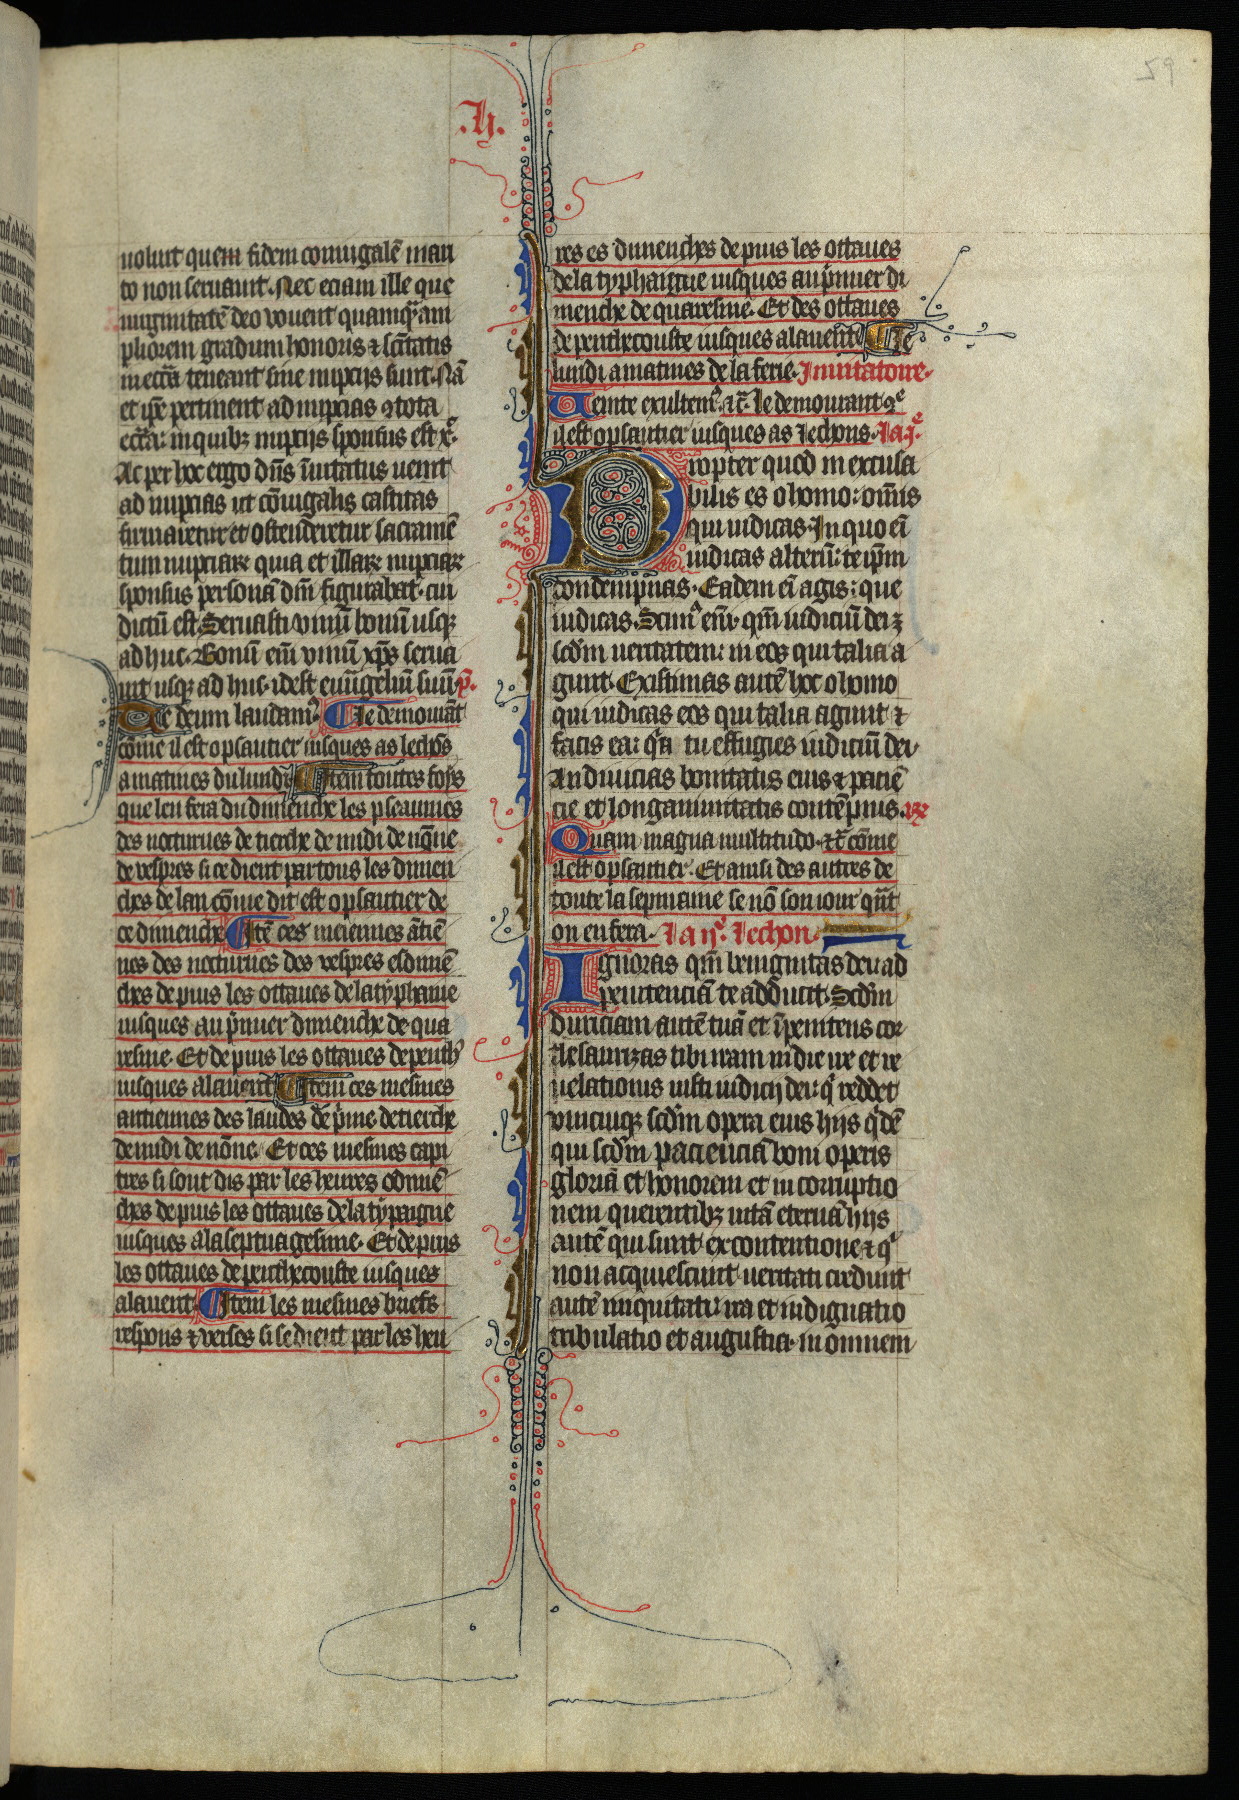 59
.h.
uoluit quem fidem coniugalē mari
to non seruauit. Nec eciam ille que
uirginitatē deo vouent quamqᷓ am
pliorem gradum honoris ⁊ sc̄itatis
in ecc̄ia teneant sine nupcijs sunt. Nā
et ip̄e pertinent ad nupcias ꝯ tota
ecc̄ia: in quibꝫ nupcijs sponsus est xp̄c.
Ac per hoc ergo dn̄s īuitatus uenit
ad nupcias ut cōiugalis castitas
firmaretur et ostenderetur sacramē
tum nupciaꝝ quia et illaꝝ nupciaꝝ
sponsus personā dn̄i figurabat. cui
dictū est. Seruasti vinū bonū usqꝫ
adhuc. Bonū em̄ vinū xp̄s serua
uit usqꝫ ad huc. idest euūgeliū suū. ꝶ.
Te deum laudamꝰ. Le demourāt
cōme il est op sautier iusques as lechōs
a matines du lundi Item toutes fois
que len fera du dimenche les pseaumes
des nocturnes de tierche de midi de nōne
de vespres si ce dient par tous les dimen
ches de lan cōme dit est op sautier de
ce dimenche Itē ces meismes ātiē
nes des nocturnes des vespres es dimē
ches de puis les ottaues de la typhanie
iusques au p̄mier dimenche de qua
resme. Et de puis les ottaues de penthꝰ
iusques alauent Item ces mesmes
antiennes des laudes de p̄me de tierche
de midi de nōne. Et ces mesmes capi
tres si sont dis par les heures es dimē
ches de puis les ottaues de la typaigne
iusques a la septuagesime. Et de puis
les ottaues de penthecouste iusques
alauent Item les mesmes briefs
respons ⁊ verses si se dient par les heu
res es dimenches de puis les ottaues
de la typhaigne iusques au p̄mier di
menche de quaresme. Et des ottaues
de penthecouste iusques a lauent Le
lundi a matines de la ferie. Inuitatoire.
Uenite exultemꝰ. ⁊c̄. le demourant qᵉ
il est op sautier iusques as lechons. La .j.ᵉ
Propter quod in excusa
bilis es o homo: om̄is
qui iudicas. In quo ei
iudicas alterū: te ip̄m
condempnas. Eadem ei agis: que
iudicas. Scimꝰ em̄. qm̄ iudiciū dei ꝫ
scd̄m ueritatem: in eos qui talia a
gunt. Existimas autē hoc o homo
qui iudicas eos qui talia agunt ⁊
facis ea: qᷓa tu effugies iudiciū dei.
An diuicias bonitatis eius ⁊ paciē
cie et longanimitatis contēpnis. ꝶ
Quam magna multitudo. ⁊c̄ cōme
il est op sautier. Et ainsi des autres de
toute la sepmaine se nō son iour qn̄t
on en fera. La .ijᵉ. lechon.
Ignoras qm̄ benignitas dei ad
penitenciā te adducit. Scd̄m
duriciam autē tuā et īpenitens cor
thesaurizas tibi iram in die ire et re
uelationis iusti iudicij dei: qͥ reddet
vnicuiqꝫ scd̄m opera eius hijs qͥdē
qui scd̄m pacienciā boni operis
gloriā et honorem et in corruptio
nem querentibꝫ uitā eternā hijs
autē qui sunt ex contentione ⁊ qͥ
non acquiescunt ueritati credunt
autē iniquitati: ira et indignatio
tribulatio et angustia. in omnem